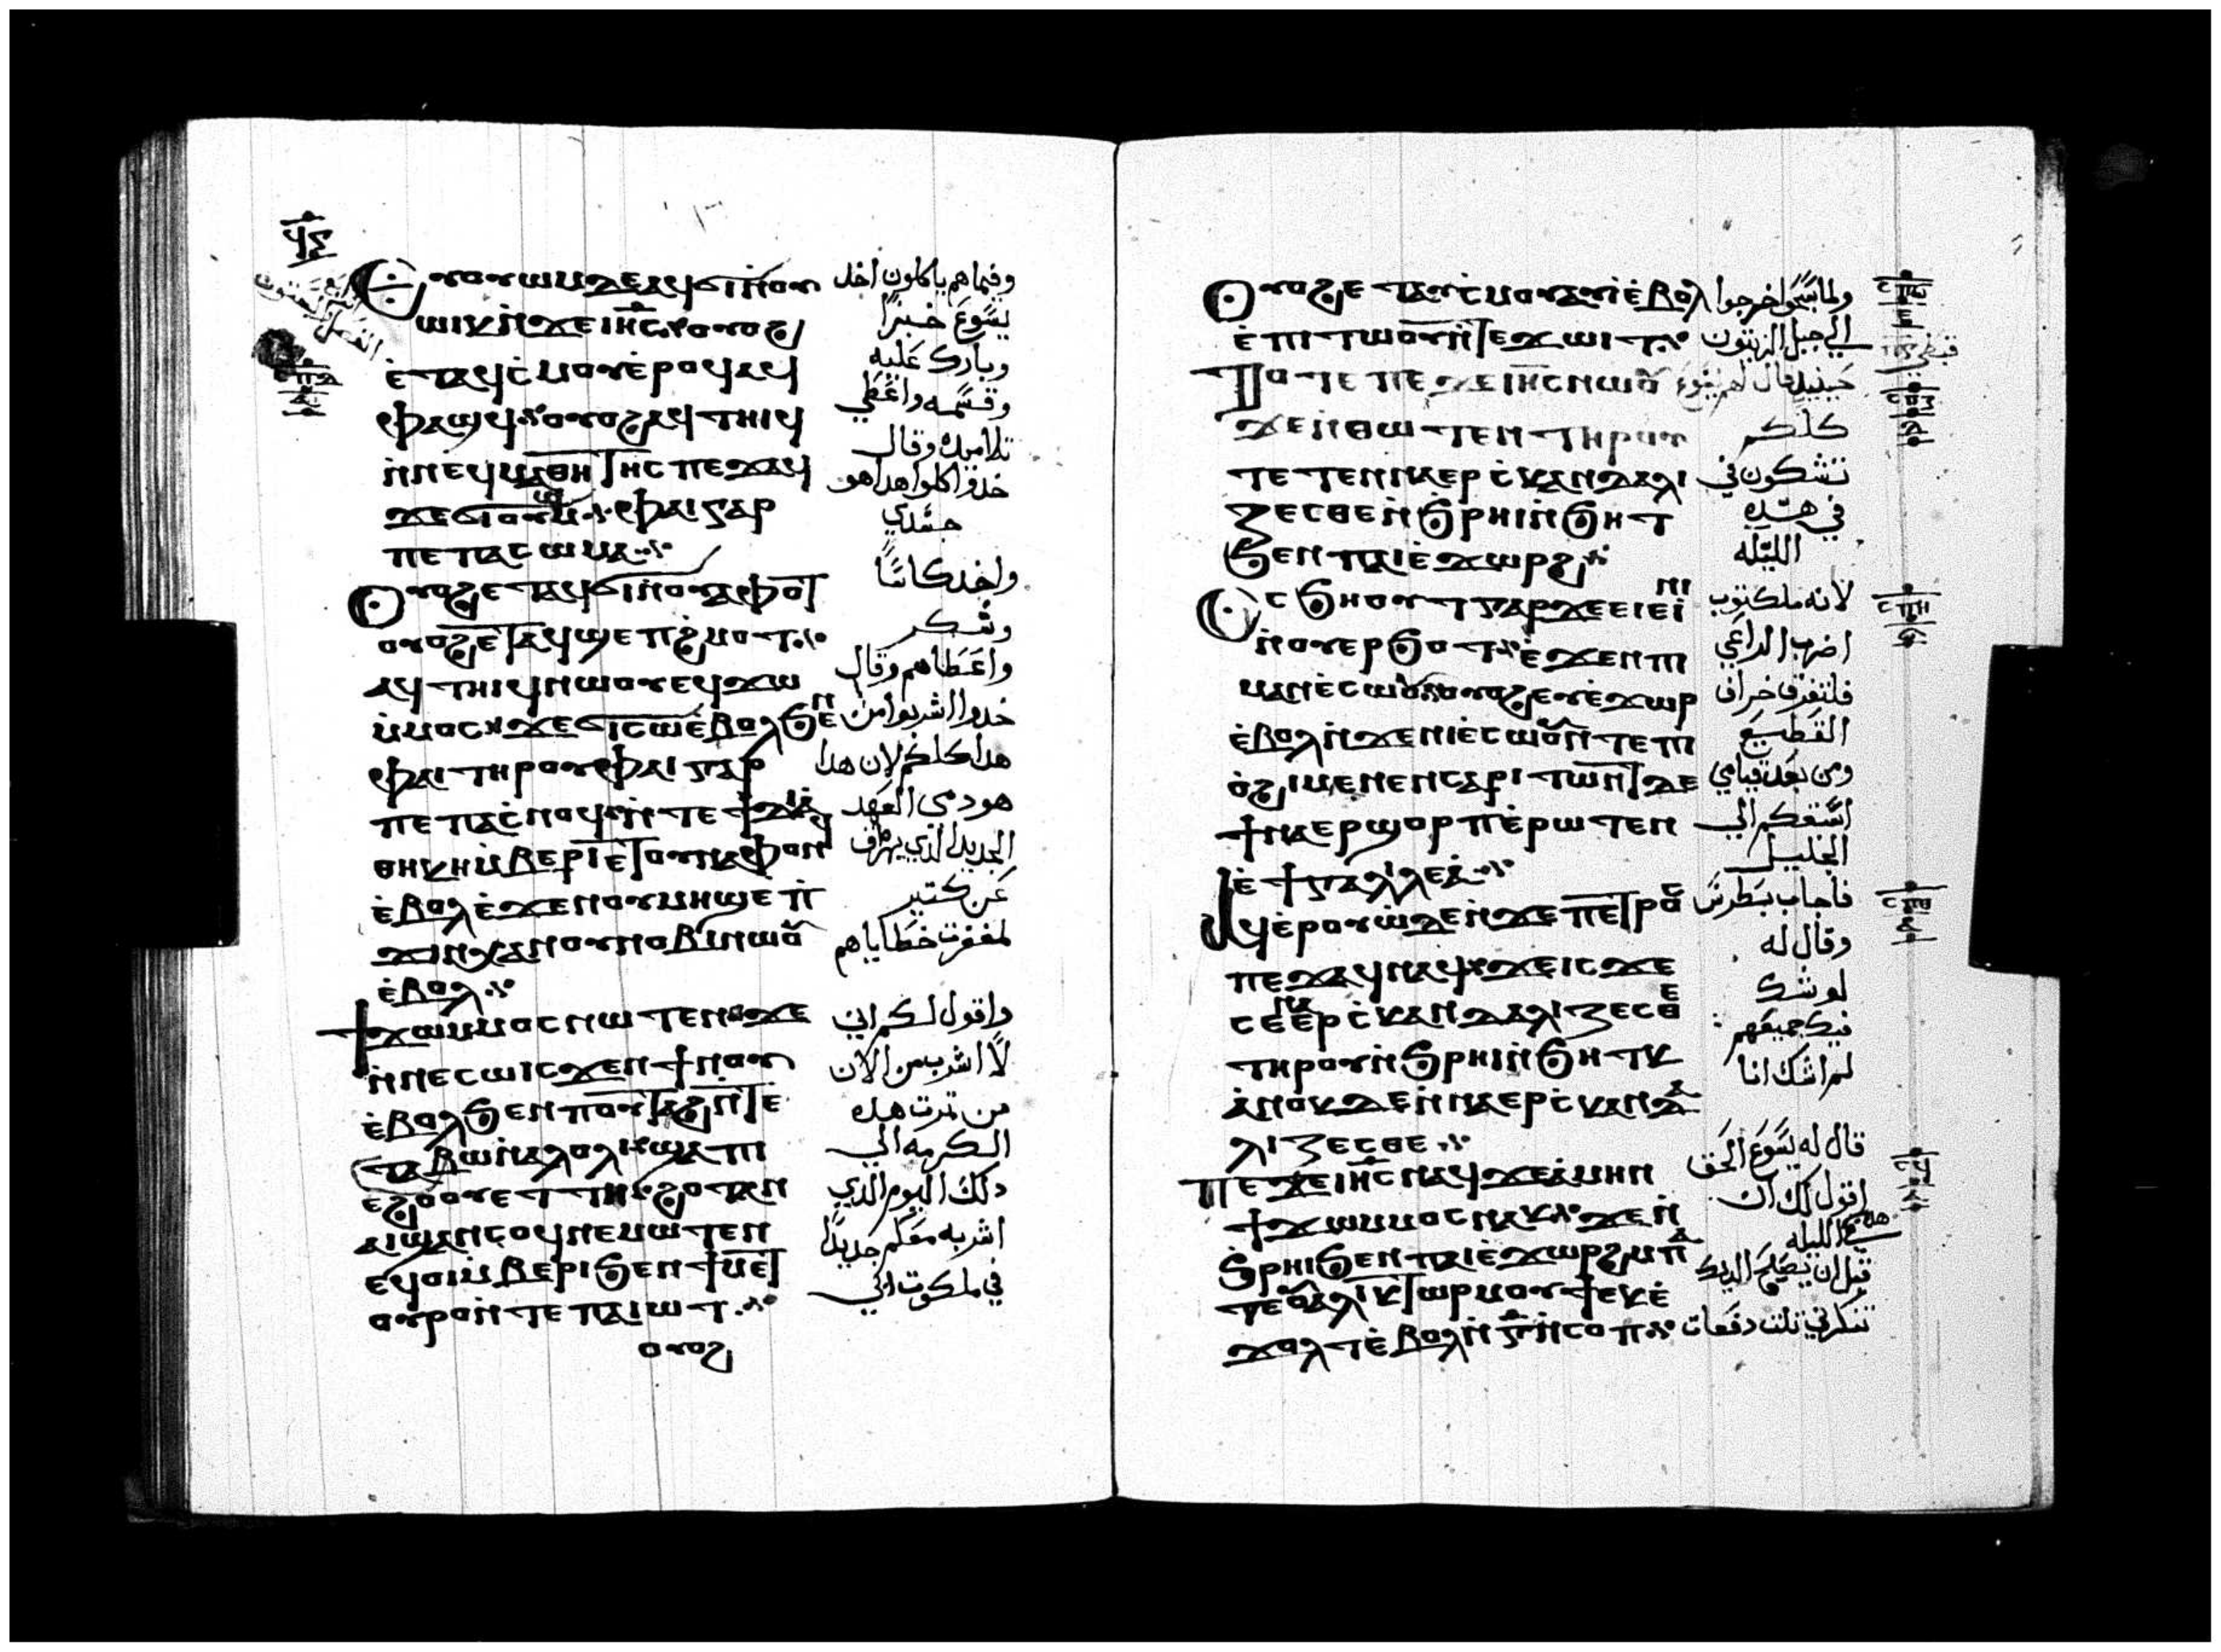 ϥⲋ
Ⲉⲩⲟⲩⲱⲙ ⲇⲉ ⲁϥϭⲓ ⲛⲟⲩ
ⲱⲓⲕ ⲛ̇ϫⲉ ⲓⲏ̅ⲥ ⲟⲩⲟϩ
ⲉ̇ⲧⲁϥⲥ̇ⲙⲟⲩ ⲉ̇ⲣⲟϥ ⲁϥ
ⲫⲁϣϥ ⲟⲩⲟϩ ⲁϥⲧⲏⲓϥ
ⲛ̇ⲛⲉϥⲙⲁⲑⲏⲧⲏⲥ ⲡⲉϫⲁϥ
ϫⲉ ϭⲓ ⲟⲩⲱⲙ ⲫⲁⲓ ⲅⲁⲣ
ⲡⲉ ⲡⲁⲥⲱⲙⲁ
Ⲟⲩⲟϩ ⲉⲧⲁϥϭⲓ ⲛⲟⲩⲁⲫⲟⲧ
ⲟⲩⲟϩ ⲉⲧⲁϥϣⲉⲡϩ̇ⲙⲟⲧ
ⲁϥⲧⲏⲓϥ ⲛⲱⲟⲩ ⲉϥϫⲱ
ⲙ̇ⲙⲟⲥ ϫⲉ ϭⲓ ⲥⲱ ⲉ̇ⲃⲟⲗ ϧⲉⲛ
ⲫⲁⲓ ⲧⲏⲣⲟⲩ ⲫⲁⲓ ⲅⲁⲣ
ⲡⲉ ⲡⲁⲥ̇ⲛⲟϥ ⲛ̇ⲧⲉ ϯⲇⲓⲁ̇
ⲑⲏⲕⲏ ⲙ̇ⲃⲉⲣⲓ ⲉ̇ⲧⲟⲩⲛⲁⲫⲟⲛϥ
ⲉ̇ⲃⲟⲗ ⲉ̇ϫⲉⲛ ⲟⲩⲙⲏϣ ⲉ̇ⲡ̇
ϫⲓⲛⲭⲁ ⲛⲟⲩⲛⲟⲃⲓ ⲛⲱⲟⲩ
ⲉ̇ⲃⲟⲗ
ϯϫⲱ ⲙⲙⲟⲥ ⲛⲱⲧⲉⲛ ϫⲉ
ⲛ̇ⲛⲉⲥⲱ ⲓⲥϫⲉⲛ ϯⲛⲟⲩ
ⲉ̇ⲃⲟⲗ ϧⲉⲛ ⲡⲟⲩⲧⲁϩ ⲛ̇ⲧⲉ
ⲧⲁⲃⲱ ⲛ̇ⲁⲗⲟⲗⲓ ϣⲁ ⲡⲓ
ⲉϩⲟⲟⲩ ⲉⲧⲧⲏ ϩⲟⲧⲁⲛ
ⲁⲓϣⲁⲛⲥⲟϥ ⲛⲉⲙⲱⲧⲉⲛ
ⲉϥⲟⲓ ⲙ̇ⲃⲉⲣⲓ ϧⲉⲛ ϯⲙⲉⲧ
ⲟⲩⲣⲟ ⲛ̇ⲧⲉ ⲡⲁⲓⲱⲧ
ⲟⲩⲟϩ
وفيماهم ياكلون اخد
يسوع خبزاً
وبارك عليه
وقسمه واعطي
تلاميده وقال
خدوا كلوا هدا هو
جسدي
واخد كاساً
وشكر
واعطاهم وقال
خدوا اشربوا من
هدا كلكم لان هدا
هو دمى العهد
الجديد الذي يهراق
عن كتير
لمغفرت خطاياهم
واقول لكم اني
لا اشرب من الان
من تمرت هده
الكرمه الي
دلك اليوم الدي
اشربه معكم جديداً
في ملكوت ابي
Ⲟⲩⲟϩ ⲉⲧⲁⲩⲥ̇ⲙⲟⲩ ⲁⲩⲓ̇ ⲉ̇ⲃⲟⲗ
ⲉ̇ⲡⲓⲧⲱⲟⲩ ⲛ̇ⲧⲉ ϫⲱⲓⲧ
Ⲧⲟⲧⲉ ⲡⲉϫⲉ ⲓⲏ̅ⲥ ⲛⲱⲟⲩ
ϫⲉ ⲛ̇ⲑⲱⲧⲉⲛ ⲧⲏⲣⲟⲩ
ⲧⲉⲧⲉⲛⲛⲁⲉⲣⲥ̇ⲕⲁⲛⲇⲁⲗⲓ
ⲍⲉⲥⲑⲉ ⲛ̇ϧⲣⲏⲓ ⲛ̇ϧⲏⲧ
ϧⲉⲛ ⲡⲁⲓⲉ̇ϫⲱⲣϩ
Ⲥϧⲏⲟⲩⲧ ⲅⲁⲣ ϫⲉ ⲉⲓⲉ̇ⲓⲛⲓ
ⲛ̇ⲟⲩⲉⲣϧⲟⲧ ⲉ̇ϫⲉⲛ ⲡⲓ
ⲙⲁⲛⲉ̇ⲥⲱⲟⲩ ⲟⲩⲟϩ ⲉⲩⲉ̇ϫⲱⲣ
ⲉ̇ⲃⲟⲗ ⲛ̇ϫⲉ ⲛⲓⲉ̇ⲥⲱⲟⲩ ⲛ̇ⲧⲉ ⲡⲓ
ⲟ̇ϩⲓ ⲙⲉⲛⲉⲛⲥⲁ ⲣⲓⲧⲱⲛⲧ ⲇⲉ
ϯⲛⲁⲉⲣϣⲟⲣⲡ ⲉ̇ⲣⲱⲧⲉⲛ
ⲉ̇ϯⲅⲁⲗⲓⲗⲉⲁ̇
Ⲁϥⲉ̇ⲣⲟⲩⲱ̇ ⲇⲉ ⲛ̇ϫⲉ ⲡⲉⲧⲣⲟⲥ
ⲡⲉϫⲁϥ ⲛⲁϥ ϫⲉ ⲓⲥϫⲉ
ⲥⲉⲛⲁⲉ̇ⲣⲥ̇ⲕⲁⲛⲇⲁⲗⲓⲍⲉⲥⲑⲉ
ⲧⲏⲣⲟⲩ ⲛ̇ϧⲣⲏⲓ ⲛ̇ϧⲏⲧⲕ
ⲁ̇ⲛⲟⲕ ⲇⲉ ⲛ̇ⲛⲁⲉⲣⲥ̇ⲕⲁⲛⲇⲁ
ⲗⲓⲍⲉⲥⲑⲉ
ⲡⲉϫⲉ ⲓⲏ̅ⲥ ⲛⲁϥ ϫⲉ ⲁ̇ⲙⲏⲛ
ϯϫⲱ ⲙⲙⲟⲥ ⲛⲁⲕ ϫⲉ ⲛ̇
ϧⲣⲏⲓ ϧⲉⲛ ⲡⲁⲓⲉ̇ϫⲱⲣϩ ⲙⲡⲁ
ⲧⲉ ⲟⲩⲁⲗⲉ̇ⲕⲧⲱⲣ ⲙⲟⲩϯ ⲉⲕⲉ̇
ϫⲟⲗⲧ ⲉ̇ⲃⲟⲗ ⲛ̇ⲅ̅ ⲛ̇ⲥⲟⲡ
ولما سبحوا خرجوا
الي جبل الزيتون
حينيد قال لهم يسوع
كلكم
تشكون في
في هده
الليله
لانه مكتوب
اضرب الراعي
فلتفرق خراف
القطيع
ومن بعد قيامي
اسبقكم الي
الجليل
فاجاب بطرس
وقال له
لو شك
فيك جميعهم
لم اشك انا
قال له يسوع الحق
اقول لك ان
في هده الليله
قبل ان يصيح الديك
تنكرني تلت دفعات